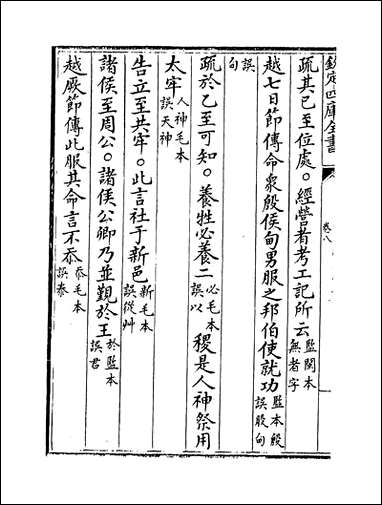 欽定四庫全書
卷八
疏其已至位處。經營者考工記所云監閩本無者字
越七日節傳命衆殷侯甸男服之邦伯使就功監本殷誤股甸
誤句
疏於乙至可知。養牲必養二必毛本誤以稷是人神祭用
太牢人神毛本誤天神
告立至共牢。此言社于新邑新毛本誤從艸
諸侯至周公。諸侯公卿乃並覲於王於監本誤君
越厥節傳此服其命言不忝忝毛本誤泰